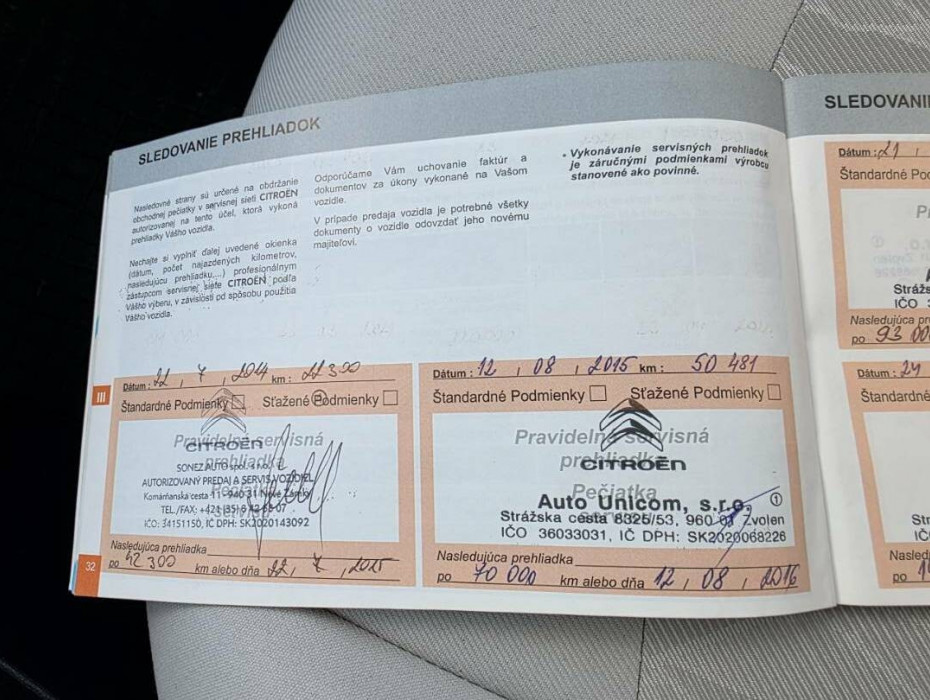 SLEDOVANIE PREHLIADOK
Nasledovné strany sú určené na obdržanie
obchodnej pečiatky v servisnej sieti CITROËN
autorizovanej na tento účel, ktorá vykoná
prehliadky Vášho vozidla.
Nechajte si vyplniť ďalej uvedené okienka
(dátum, počet najazdených kilometrov,
nasledujúcu prehliadku,...) profesionálnym
zástupcom servisnej siete CITROËN podľa
Vášho výberu, v závislosti od spôsobu použitia
Vášho vozidla.
Odporúčame Vám uchovanie faktúr a
dokumentov za úkony vykonané na Vašom
vozidle.
V prípade predaja vozidla je potrebné všetky
dokumenty o vozidle odovzdať jeho novému
majiteľovi.
• Vykonávanie servisných prehliadok
je záručnými podmienkami výrobcu
stanovené ako povinné.
III
Dátum : 22 , 7 , 2014 km : 22 300
Štandardné Podmienky Sťažené Podmienky
Pravidelná servisná
prehliadka
CITROËN
SONEZ AUTO spol. s r.o.
AUTORIZOVANÝ PREDAJ A SERVIS VOZIDIEL
Komárňanska cesta 11, 940 31 Nové Zámky
TEL./FAX:
IČO: 34151150, IČ DPH: SK2020143092
Nasledujúca prehliadka
po 42 300 km alebo dňa 22 , 7 , 2015
32
Dátum : 12 , 08 , 2015 km : 50 481
Štandardné Podmienky Sťažené Podmienky
Pravidelná servisná
prehliadka
CITROËN
Pečiatka
Auto Unicom, s.r.o. 1
Strážska cesta 8325/53, 960 01 Zvolen
IČO 36033031, IČ DPH: SK2020068226
Nasledujúca prehliadka
po 70 000 km alebo dňa 12 , 08 , 2016
SLEDOVANI
Dátum : 21 ,
Štandardné Pod
Stráž
IČO
Nasledujúca pre
po 93 000
Dátum : 24
Štandardné
Nasled
po